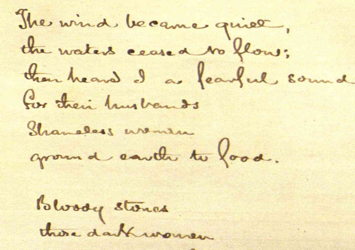 The wind became quiet,
the waters ceased to flow;
then heard I a fearful sound
For their husbands
Shameless women
ground earth to food.
Bloody stones
those dark women